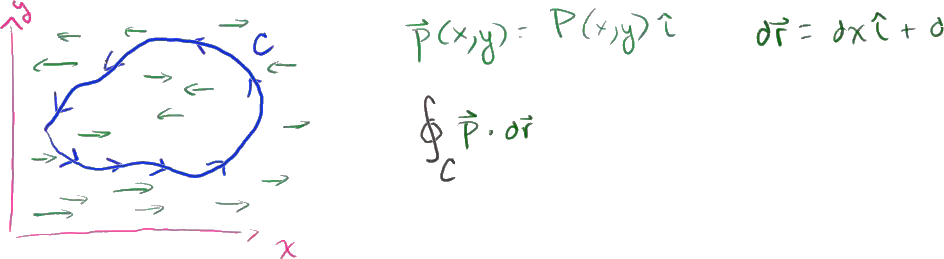 y
C
P⃗(x,y) = P(x,y) î
dr⃗ = dx î + d
∮_C P⃗ · dr⃗
x